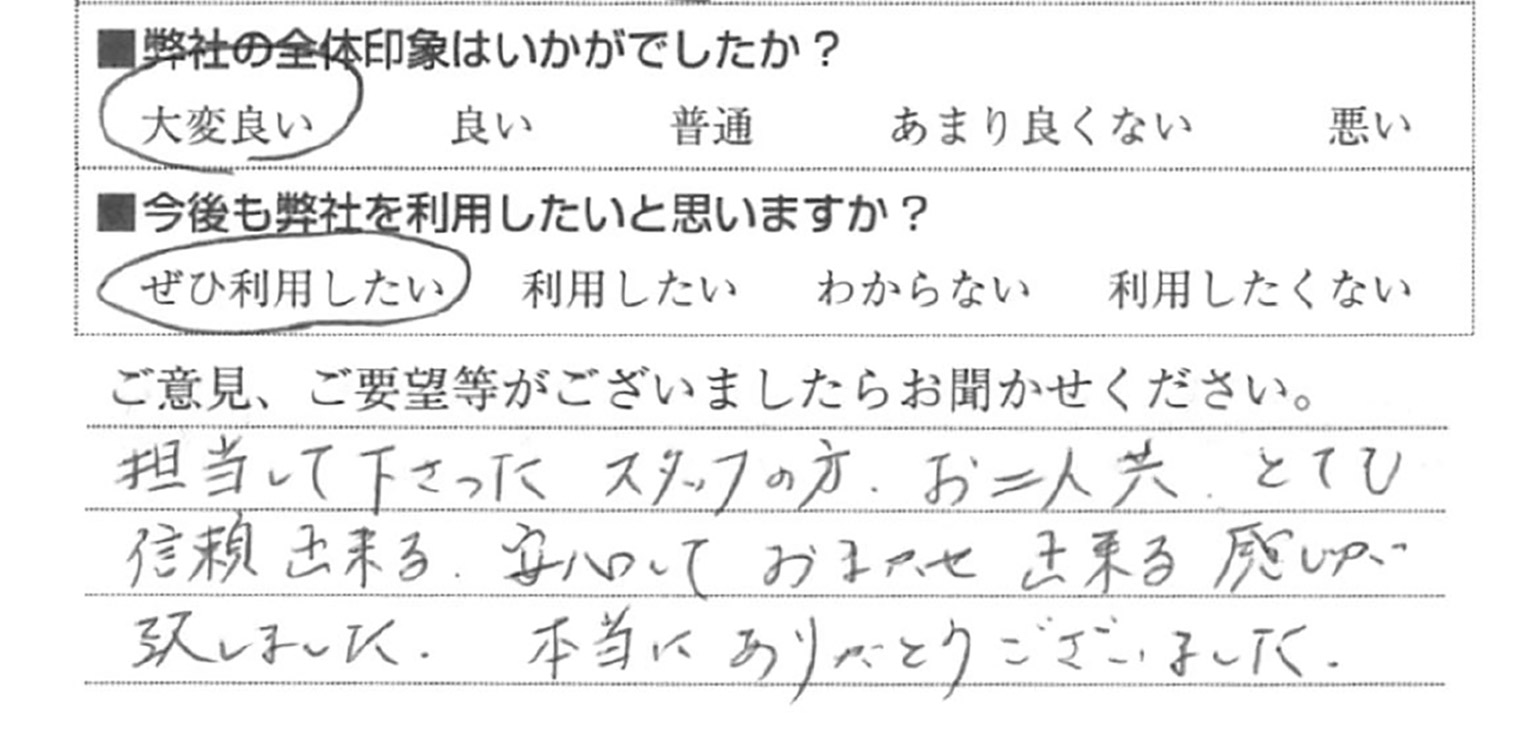 ■弊社の全体印象はいかがでしたか？
大変良い 良い 普通 あまり良くない 悪い
■今後も弊社を利用したいと思いますか？
ぜひ利用したい 利用したい わからない 利用したくない
ご意見、ご要望等がございましたらお聞かせください。
担当して下さった スタッフの方、お二人共、とても
信頼出来る、安心して おまかせ 出来る 感じが
致しました。 本当に ありがとうございました。